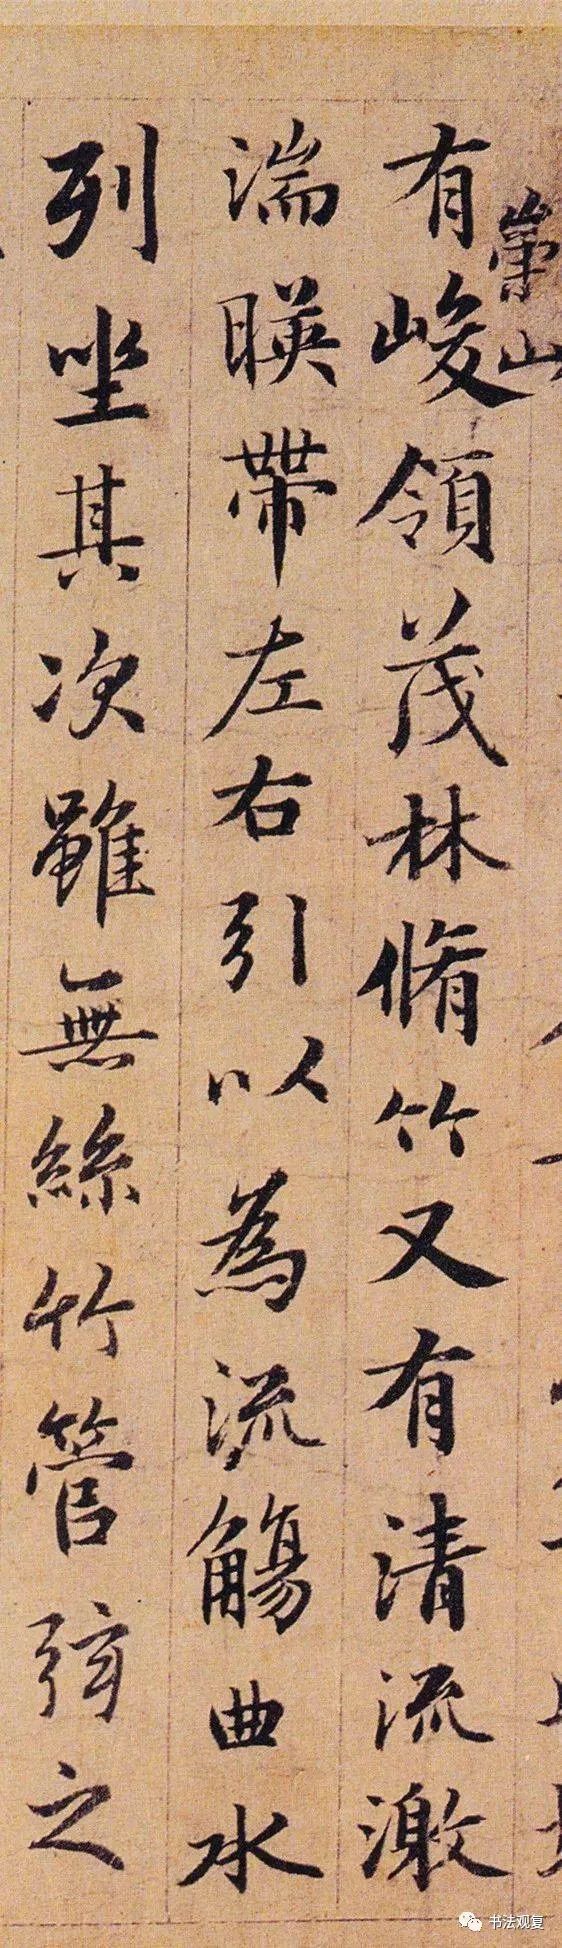 崇山
有峻領茂林脩竹又有清流激
湍暎帶左右引以為流觴曲水
列坐其次雖無絲竹管弦之
书法观复